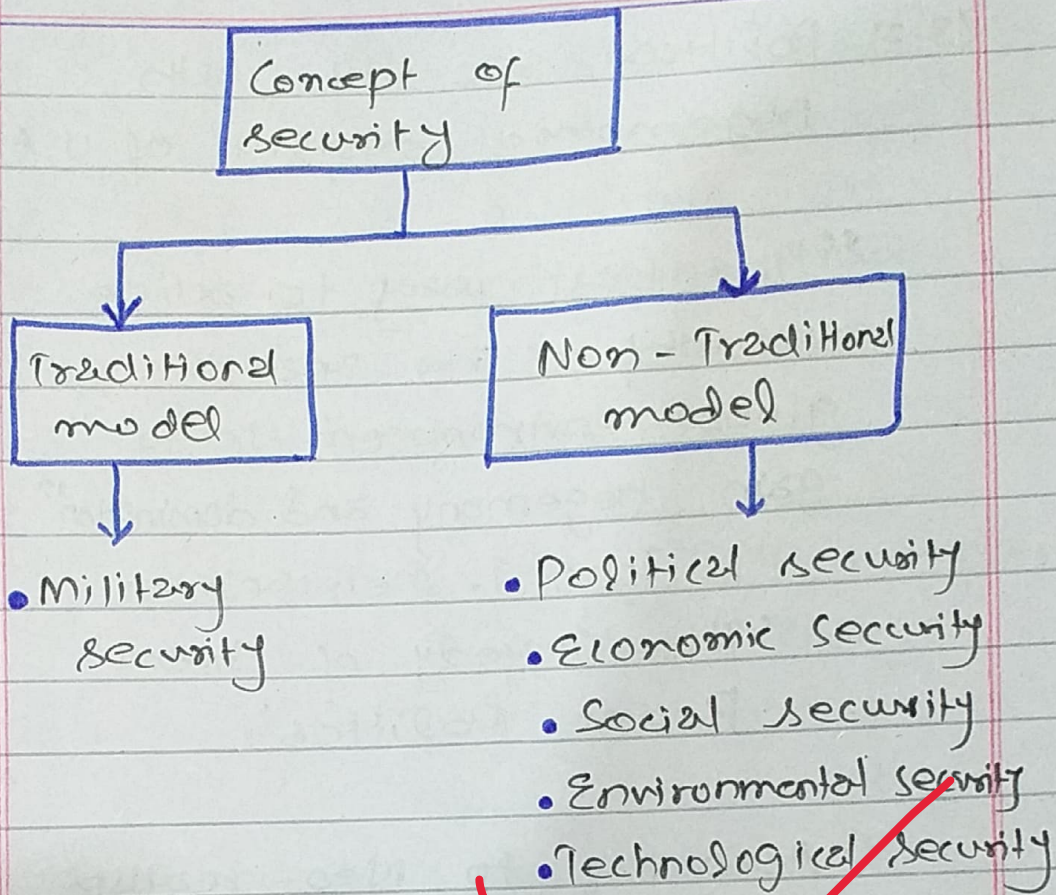 Concept of
security
Traditional
model
Non-Traditional
model
• Military
security
• Political security
• Economic seccurity
• Social security
• Environmental security
• Technological security